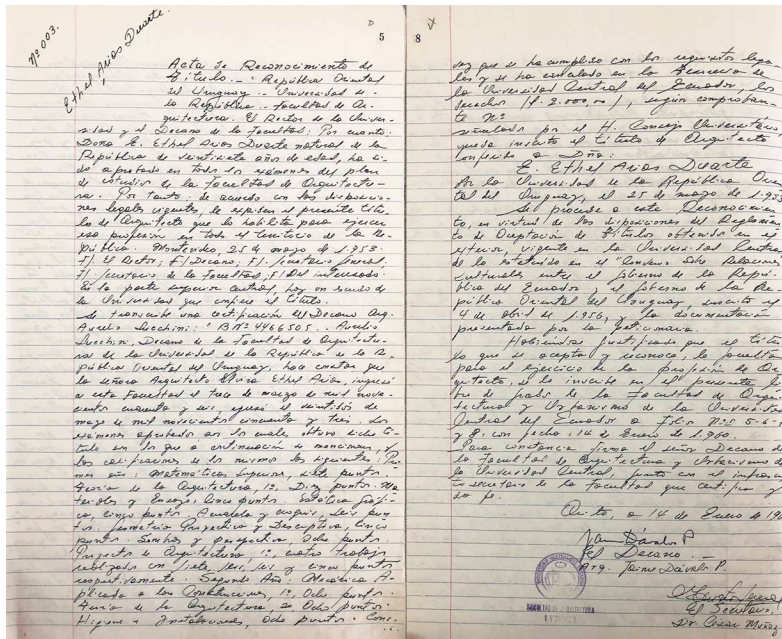 Nº 003.
Ethel Arias Duarte.
5
Acta de Reconocimiento de
Título. - República Oriental
del Uruguay - Universidad de
la República - Facultad de Ar-
quitectura. El Rector de la Univer-
sidad y el Decano de la Facultad: Por cuanto:
Doña E. Ethel Arias Duarte natural de la
República de veintisiete años de edad, ha si-
do aprobada en todos los exámenes del plan
de estudios de la Facultad de Arquitectu-
ra. Por tanto: de acuerdo con las disposicio-
nes legales vigentes, le expiden el presente títu-
lo de Arquitecto que la habilita para ejercer
esa profesión en todo el territorio de la Re-
pública. Montevideo, 25 de marzo de 1.953.
F). El Rector; F) Decano; F). Secretario General.
F) Secretario de la Facultad; F) Del interesado.
En la parte superior central, hay un escudo de
la Universidad que confiere el título.
Se transcribe una certificación del Decano Arq.
Aurelio Lucchini: "B Nº 4466505. Aurelio
Lucchini, Decano de la Facultad de Arquitectu-
ra de la Universidad de la República de la Re-
pública Oriental del Uruguay, hace constar que
la señora Arquitecto Ethel Arias, ingresó
a esta Facultad el trece de marzo de mil nove-
cientos cuarenta y seis, egresó el veintidós de
marzo de mil novecientos cincuenta y tres. Los
exámenes aprobados con los cuales obtuvo dicho tí-
tulo son los que a continuación se mencionan, y
las calificaciones de los mismos las siguientes: Pri-
mer año: Matemáticas Superior, siete puntos.
Teoría de la Arquitectura, 1º, Diez puntos. Ma-
teriales y Ensayo, Cinco puntos. Estática gráfi-
ca, cinco puntos. Acuarela y croquis, Seis pun-
tos. Geometría Proyectiva y Descriptiva, Cinco
puntos. Sombras y perspectiva, Ocho puntos.
Proyectos de Arquitectura 1º, cuatro trabajos
realizados con siete, seis, seis y cinco puntos
respectivamente. Segundo Año: Mecánica A-
plicada a las Construcciones, 1º, Ocho puntos.
Teoría de la Arquitectura, 2º Ocho puntos.
Higiene e Instalaciones, Ocho puntos. Cons-
8
vez que se ha cumplido con los requisitos lega-
les y se ha cancelado en la Tesorería de
la Universidad Central del Ecuador, los
derechos (S. 2.000,oo), según comproban-
te Nº
señalados por el H. Consejo Universitario,
queda inscrito el título de Arquitecto
conferido a Dña:
E. Ethel Arias Duarte
Por la Universidad de la República Orien-
tal del Uruguay, el 25 de marzo de 1.953
Se procede a este Reconocimien-
to, en virtud de las disposiciones del Reglamen-
to de Aceptación de Títulos obtenidos en el
exterior, vigente en la Universidad Central
de lo estatuido en el "Convenio Sobre Relaciones
Culturales entre el Gobierno de la Repú-
blica del Ecuador y el Gobierno de la Re-
pública Oriental del Uruguay, suscrito el
4 de abril de 1.956, y la documentación
presentada por la peticionaria.
Habiéndose justificado que el títu-
lo que se acepta y reconoce, le faculta
para el ejercicio de la profesión de Ar-
quitecto, se lo inscribe en el presente li-
bro de grado de la Facultad de Arqui-
tectura y Urbanismo de la Universidad
Central del Ecuador a folio Nº 5-6-7
y 8 con fecha, 14 de Enero de 1.960.
Para constancia firma el señor Decano de
la Facultad de Arquitectura y Urbanismo de
la Universidad Central, junto con el infrascri-
to secretario de la Facultad que certifica y
da fe.
Quito, a 14 de Enero de 19
Jaime Dávalos P.
El Decano. -
Arq. Jaime Dávalos P.
FACULTAD DE ARQUITECTURA
El Secretario,
Dr. César Muñoz